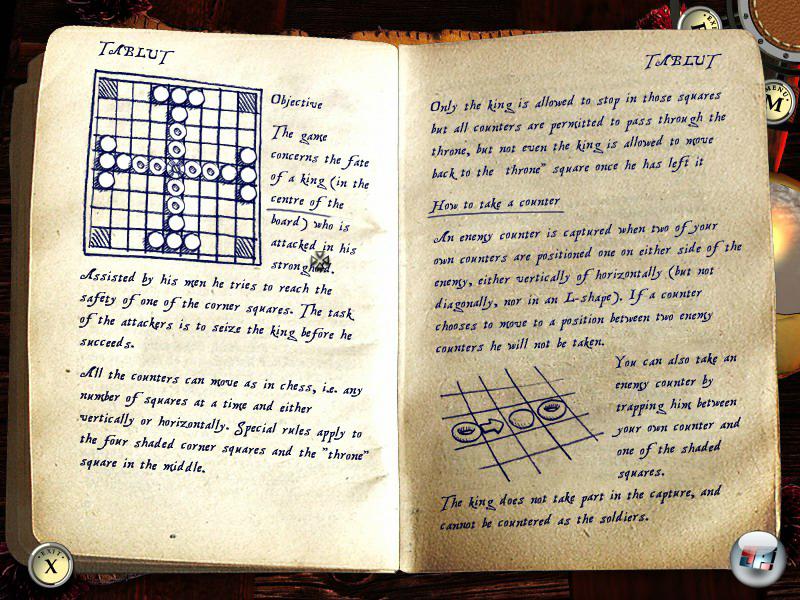 TABLUT
Objective
The game
concerns the fate
of a king (in the
centre of the
board) who is
attacked in his
stronghold.
Assisted by his men he tries to reach the
safety of one of the corner squares. The task
of the attackers is to seize the king before he
succeeds.
All the counters can move as in chess, i.e. any
number of squares at a time and either
vertically or horizontally. Special rules apply to
the four shaded corner squares and the "throne"
square in the middle.
EXIT
X
TABLUT
Only the king is allowed to stop in those squares
but all counters are permitted to pass through the
throne, but not even the king is allowed to move
back to the throne" square once he has left it
How to take a counter
An enemy counter is captured when two of your
own counters are positioned one on either side of the
enemy, either vertically of horizontally (but not
diagonally, nor in an L-shape). If a counter
chooses to move to a position between two enemy
counters he will not be taken.
You can also take an
enemy counter by
trapping him between
your own counter and
one of the shaded
squares.
The king does not take part in the capture, and
cannot be countered as the soldiers.
MENU
M